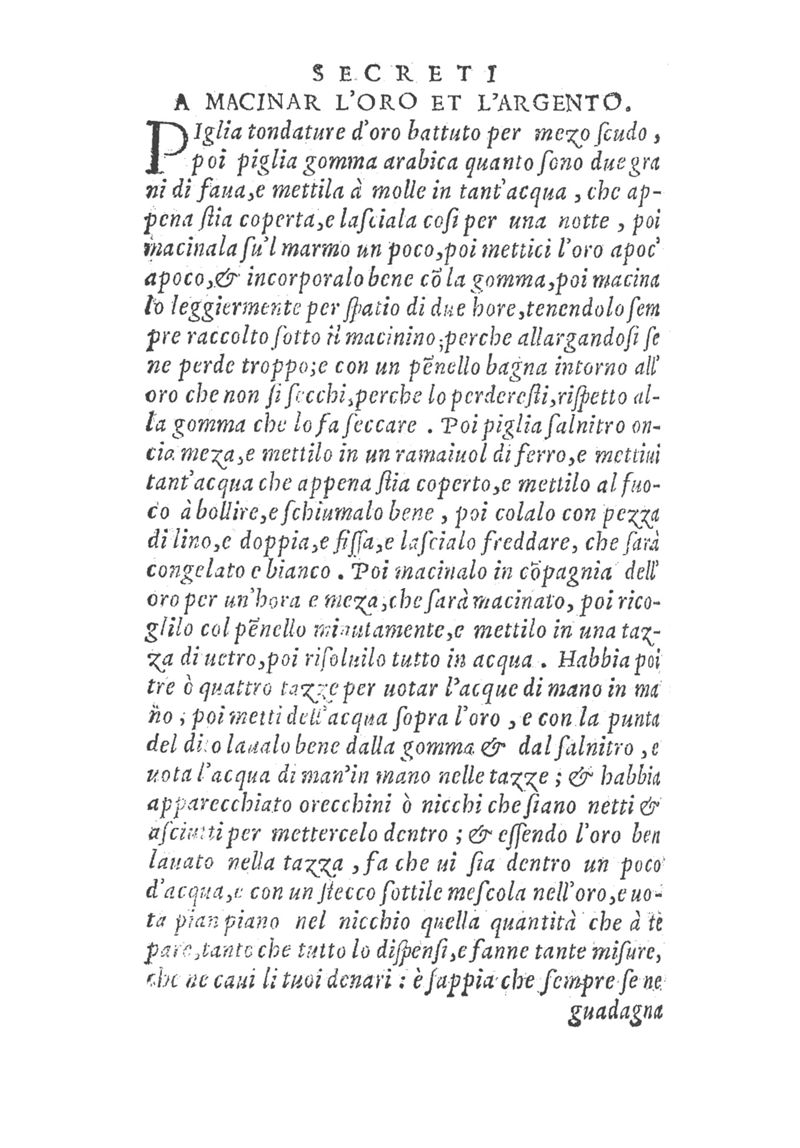 SECRETI
A MACINAR L'ORO ET L'ARGENTO.
PIglia tondature d'oro battuto per mezo ſcudo,
poi piglia gomma arabica quanto ſono due gra
ni di faua,e mettila à molle in tant'acqua, che ap-
pena ſtia coperta,e laſciala coſi per una notte, poi
macinala ſu'l marmo un poco,poi mettici l'oro apoc'
apoco,& incorporalo bene cō la gomma,poi macina
lo leggiermente per ſpatio di due hore,tenendolo ſem
pre raccolto ſotto il macinino;perche allargandoſi ſe
ne perde troppo;e con un pēnello bagna intorno all'
oro che non ſi ſecchi,perche lo perdereſti,riſpetto al-
la gomma che lo fa ſeccare. Poi piglia ſalnitro on-
cia meza,e mettilo in un ramaiuol di ferro,e mettiui
tant'acqua che appena ſtia coperto,e mettilo al fuo-
co à bollire,e ſchiumalo bene, poi colalo con pezza
di lino,e doppia,e fiſſa,e laſcialo freddare, che ſarà
congelato e bianco. Poi macinalo in cōpagnia dell'
oro per un'hora e meza,che ſarà macinato, poi rico-
glilo col pēnello minutamente,e mettilo in una taz-
za di uetro,poi riſoluilo tutto in acqua. Habbia poi
tre ò quattro tazze per uotar l'acque di mano in ma
no; poi metti dell'acqua ſopra l'oro, e con la punta
del dito laualo bene dalla gomma & dal ſalnitro, e
uota l'acqua di man'in mano nelle tazze; & habbia
apparecchiato orecchini ò nicchi che ſiano netti &
aſciutti per mettercelo dentro; & eſſendo l'oro ben
lauato nella tazza, fa che ui ſia dentro un poco
d'acqua,e con un ſtecco ſottile meſcola nell'oro,e uo-
ta pian piano nel nicchio quella quantità che à te
pare,tanto che tutto lo diſpenſi,e fanne tante miſure,
che ne caui li tuoi denari: è ſappia che ſempre ſe ne
guadagna